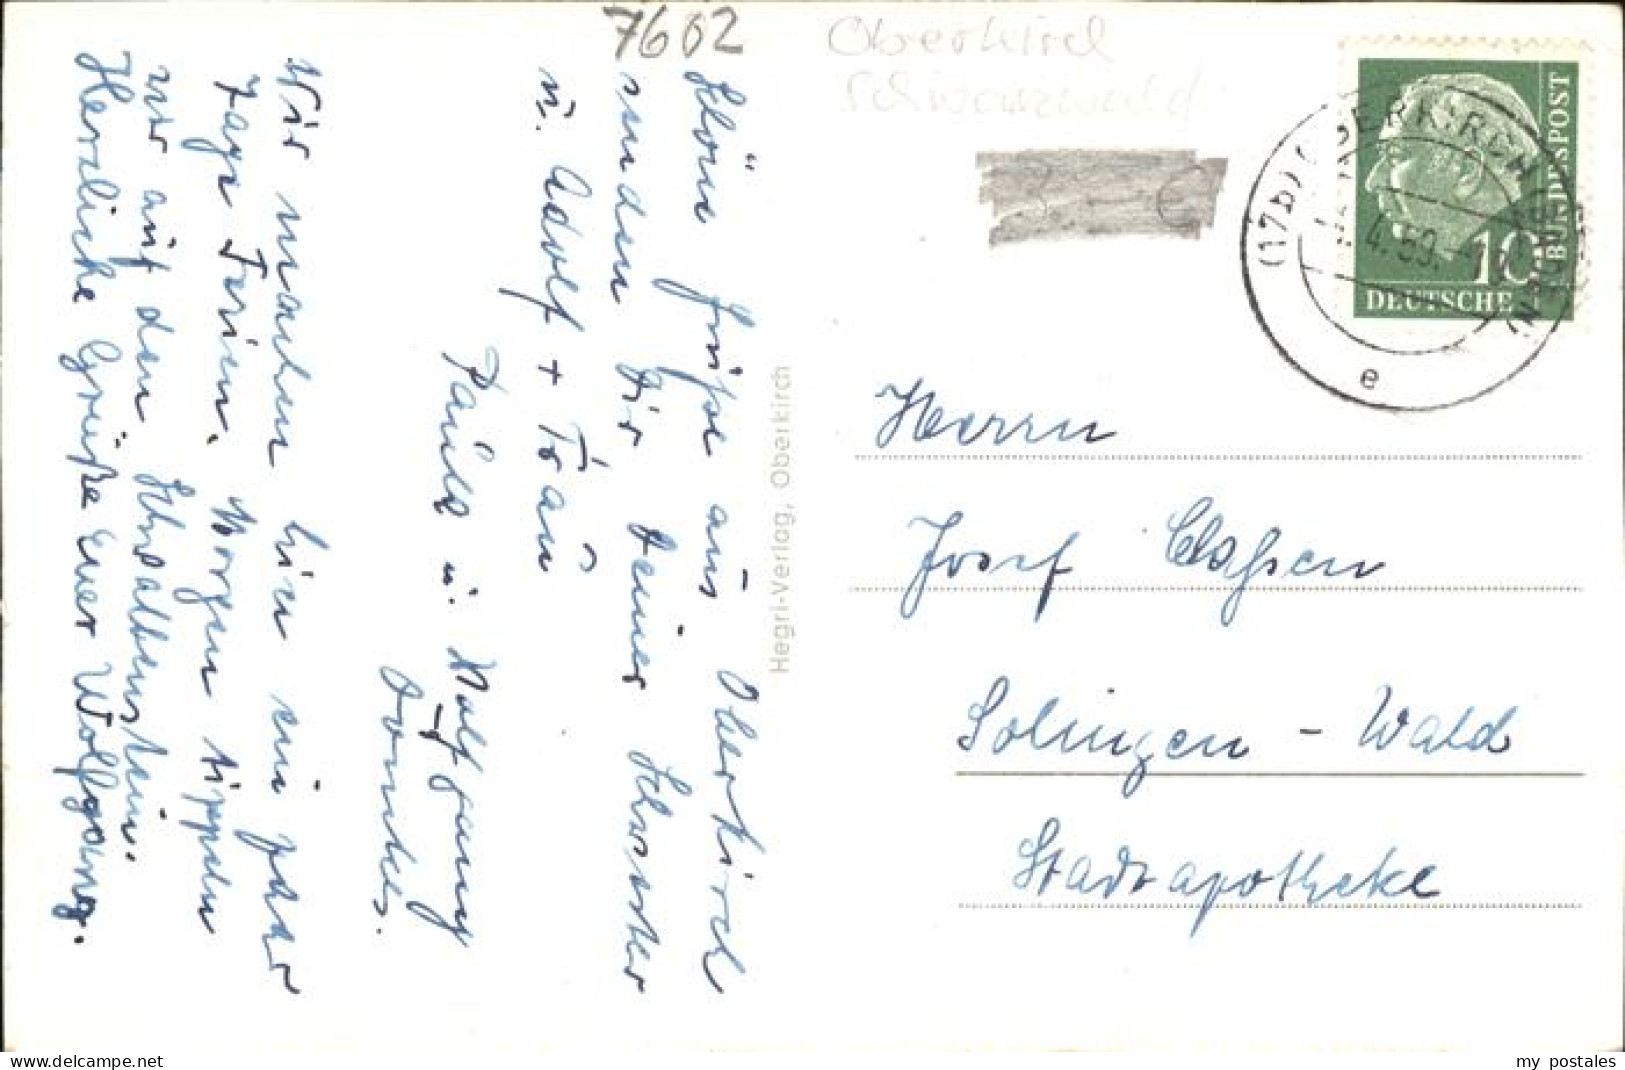 7602
Oberkirch
Schwarzwald
Schöne Grüße aus Oberkirch
senden Dir Deiner Schwester
u. Adolf + Frau
Paula u. Wolfgang
Wir machen hier ein paar
Tage Ferien. Morgen tippeln
wir auf den Schwalbenstein.
Herzliche Grüße Euer Wolfgang.
Hegri-Verlag, Oberkirch
(17b) OBERKIRCH
4.59.
e
DEUTSCHE
BUNDESPOST
10
Herrn
Josef Claßen
Solingen - Wald
Stadtapotheke
delcampe.net
my_postales